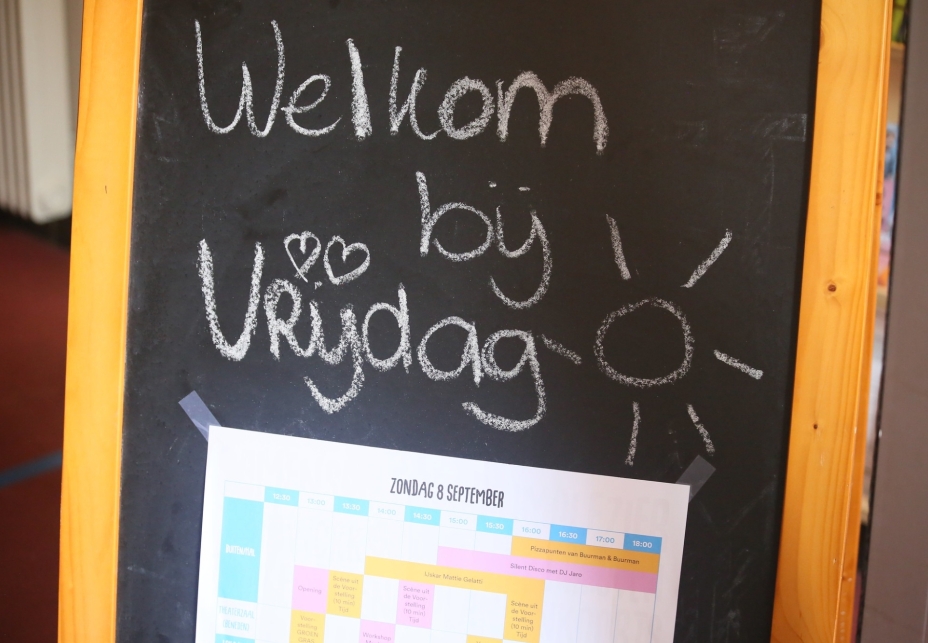 Welkom
bij
Vrijdag
ZONDAG 8 SEPTEMBER
13:00 13:30 14:00 14:30 15:00 15:30 16:00 16:30 17:00 18:00
Pizzapunten van Buurman & Buurman
Silent Disco met DJ Jaro
IJskar Mattie Galatti
Opening
Scène uit
de voor-
stelling
(10 min)
Tijd
Scène uit
de Voor-
stelling
(10 min)
Tijd
Scène uit
de Voor-
stelling
(10 min)
Tijd
Workshop